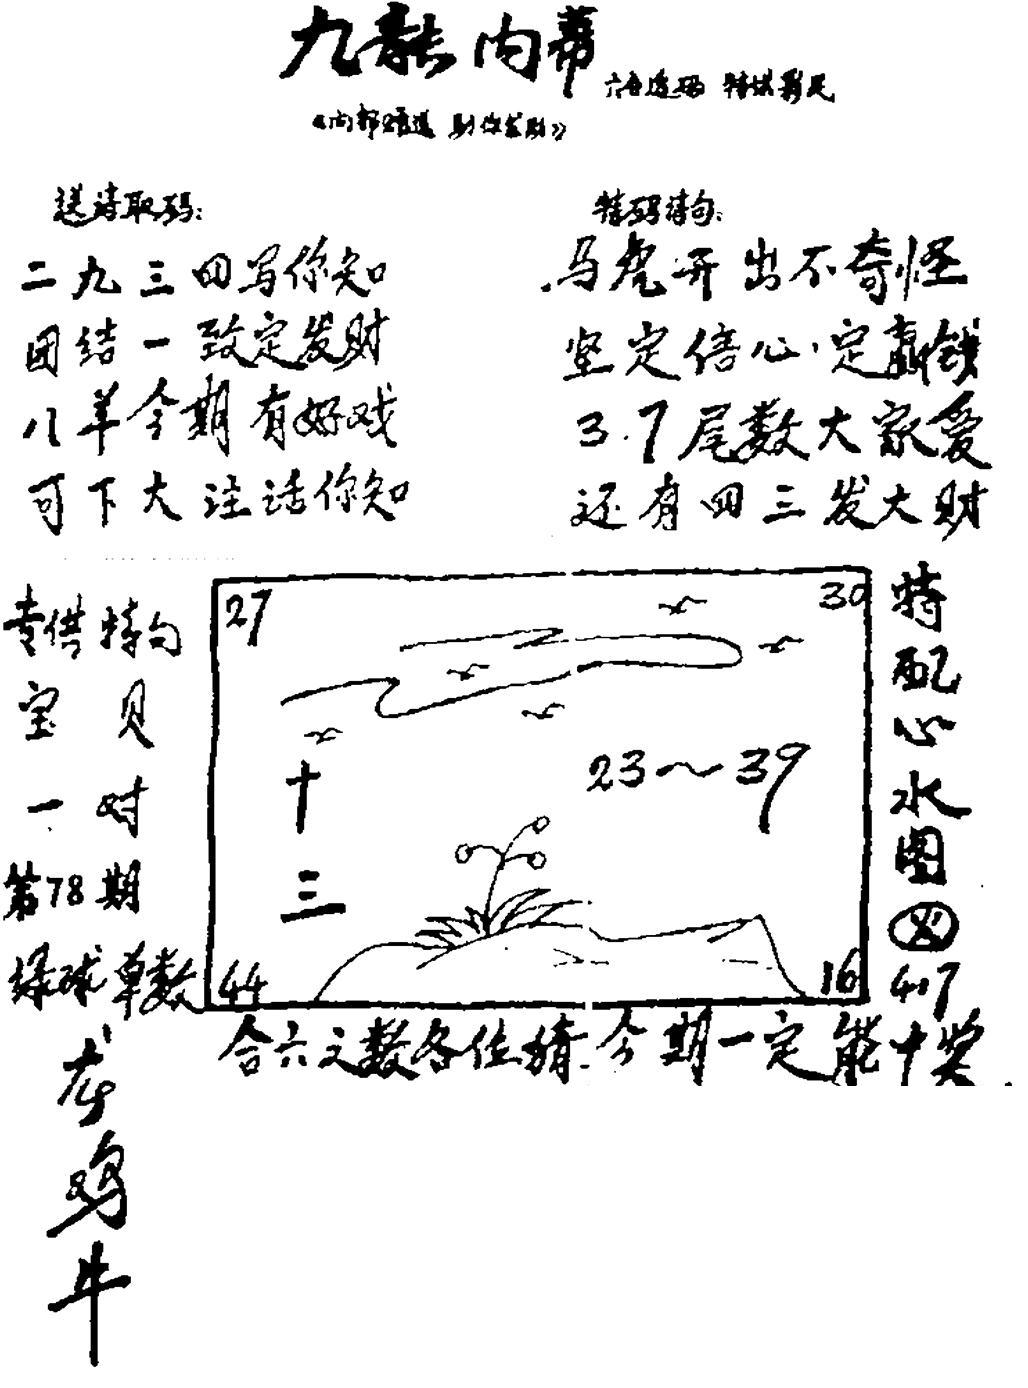 九龙内幕
六合透码 特供彩民
送诗取码:
特码诗句:
二九三四写你知
团结一致定发财
八羊今期有好戏
可下大注话你知
马虎开出不奇怪
坚定信心定赢钱
3.7尾数大家爱
还有四三发大财
专供特句
宝贝
一对
第78期
绿球单数
龙
鸡
牛
27
30
23~39
十
三
44
16
特
配
心
水
图
4.7
合六文数各位猜 今期一定能中奖